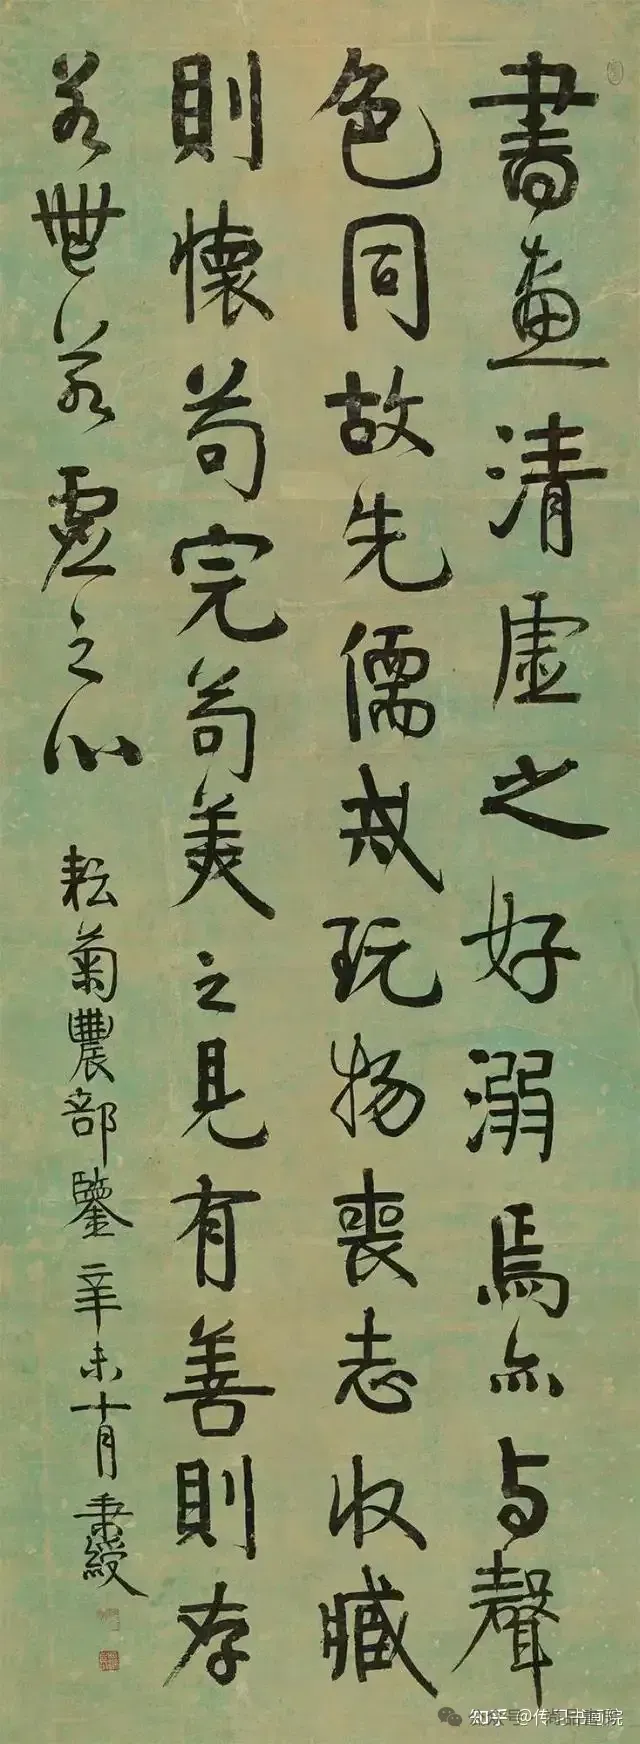 書畫清虛之好溺焉亦与聲
色同故先儒戒玩物喪志收臧
則懷苟完苟美之見有善則存
若無若虛之心
耘菊農部鑒辛未十月秉綬
知乎 @传习书画院